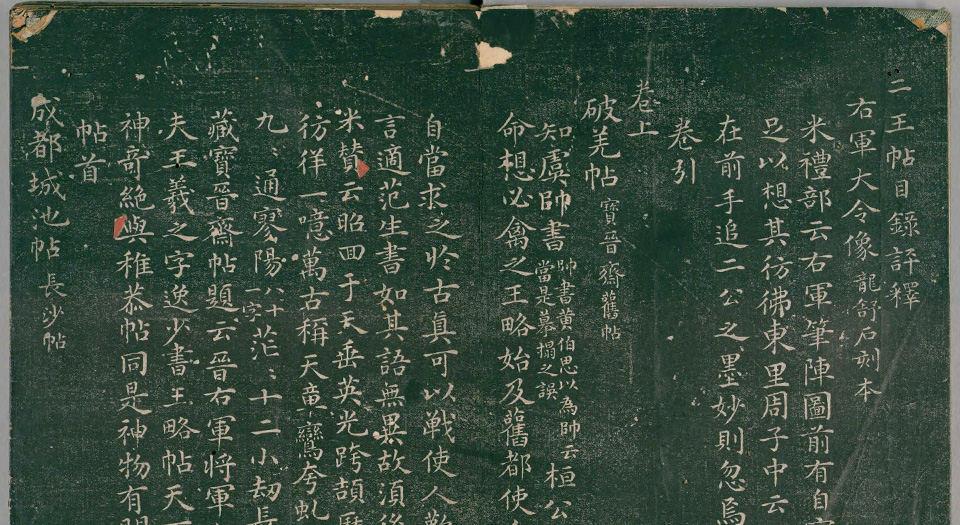 二王帖目錄評釋
右軍大令像龍舒石刻本
米禮部云右軍筆陣圖前有自
足以想其彷彿東里周子中云
在前手追二公之墨妙則忽焉
卷引
卷上
破羌帖寶晉齋舊帖
知虞帥書帥書黄伯思以為帥云當是摹搨之誤桓公
命想必禽之王略始及舊都使
自當求之於古真可以戰使人
言適范生書如其語無異故須
米贊云昭回于天垂英光跨頡
彷徉一噫萬古稱天章鸞夸虬
九〻通寥陽八十一字茫〻十二小劫長
藏寶晉齋帖題云晉右軍将軍
夫王羲之字逸少書王略帖天
神奇絕與稚恭帖同是神物有
帖首
成都城池帖長沙帖